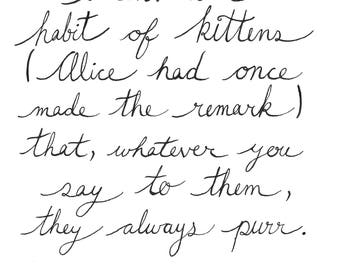 habit of kittens
(Alice had once
made the remark)
that, whatever you
say to them,
they always purr.